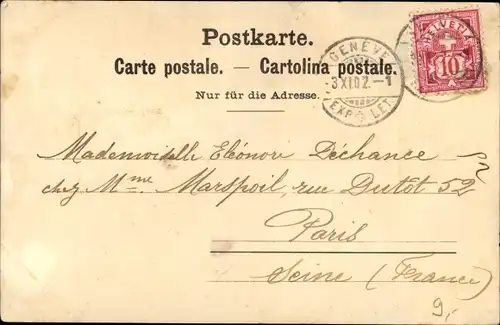 Postkarte.
Carte postale. — Cartolina postale.
Nur für die Adresse.
HELVETIA
10
GENÈVE
3 XI 02. – 1
EXP. LET.
Mademoiselle Eléonore Déchance
chez Mme Marspoil, rue Dutot 52
Paris
Seine (France)
9,-